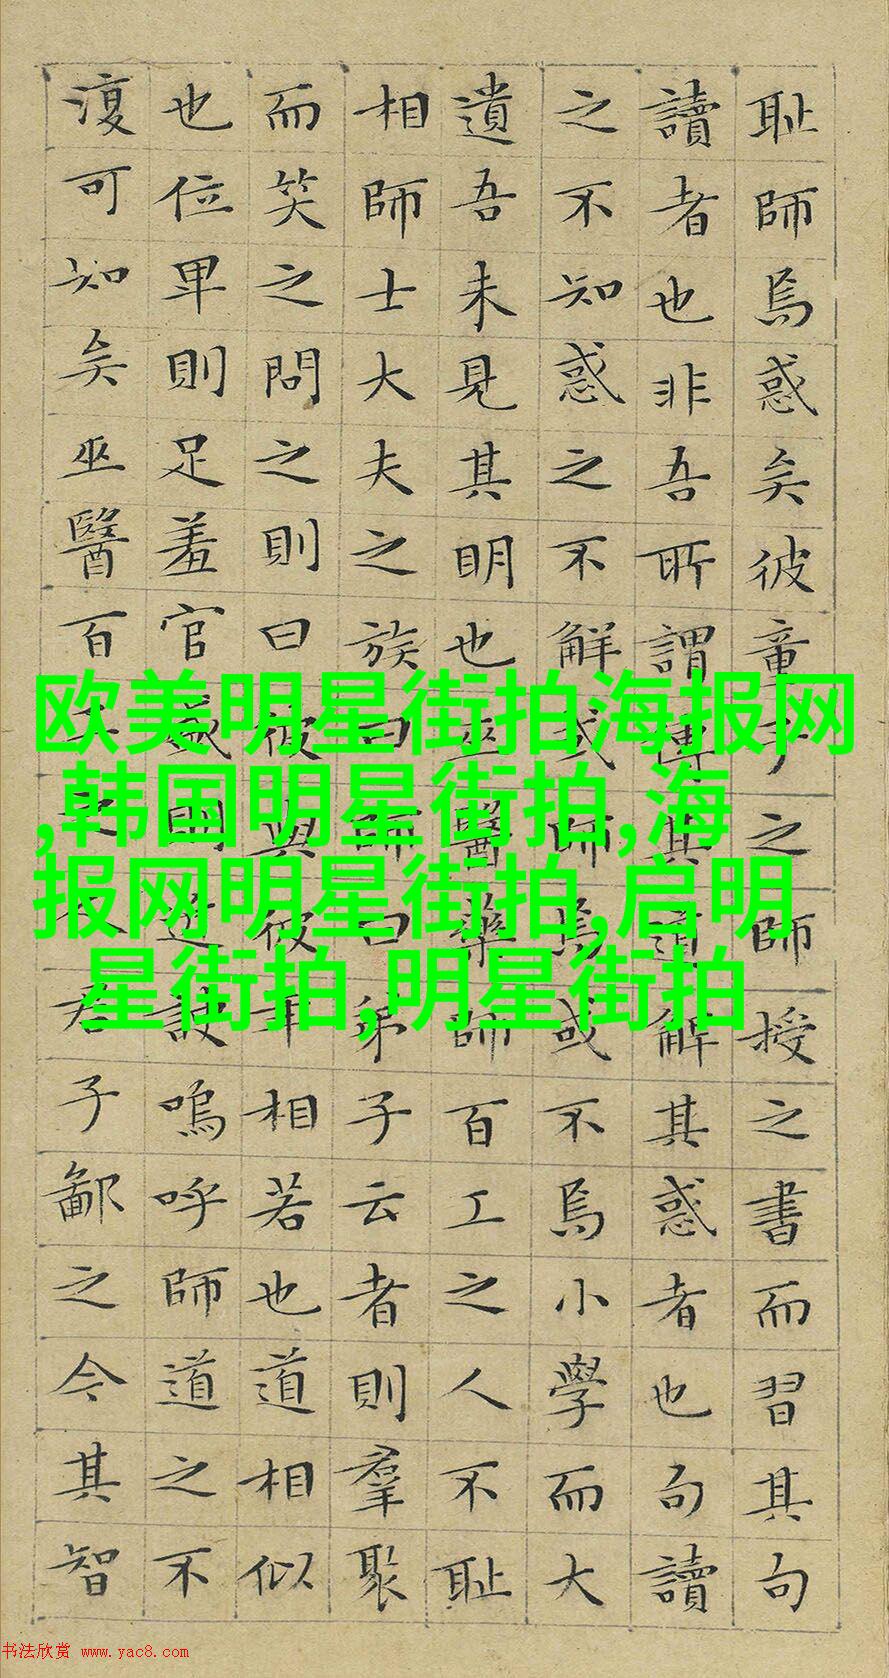 耻師焉惑矣彼童子之師授之書而習其句
讀者也非吾所謂傳其道解其惑者也句讀
之不知惑之不解或師焉或不焉小學而大
遺吾未見其明也巫醫藥師百工之人不耻
相師士大夫之族曰師曰弟子云者則羣聚
而笑之問之則曰彼與彼年相若也道相似
也位卑則足羞官盛則近諛嗚呼師道之不
復可知矣巫醫百君子鄙之今其智
欧美明星街拍海报网
,韩国明星街拍,海
报网明星街拍,启明
星街拍,明星街拍
书法欣赏 www.yac8.com